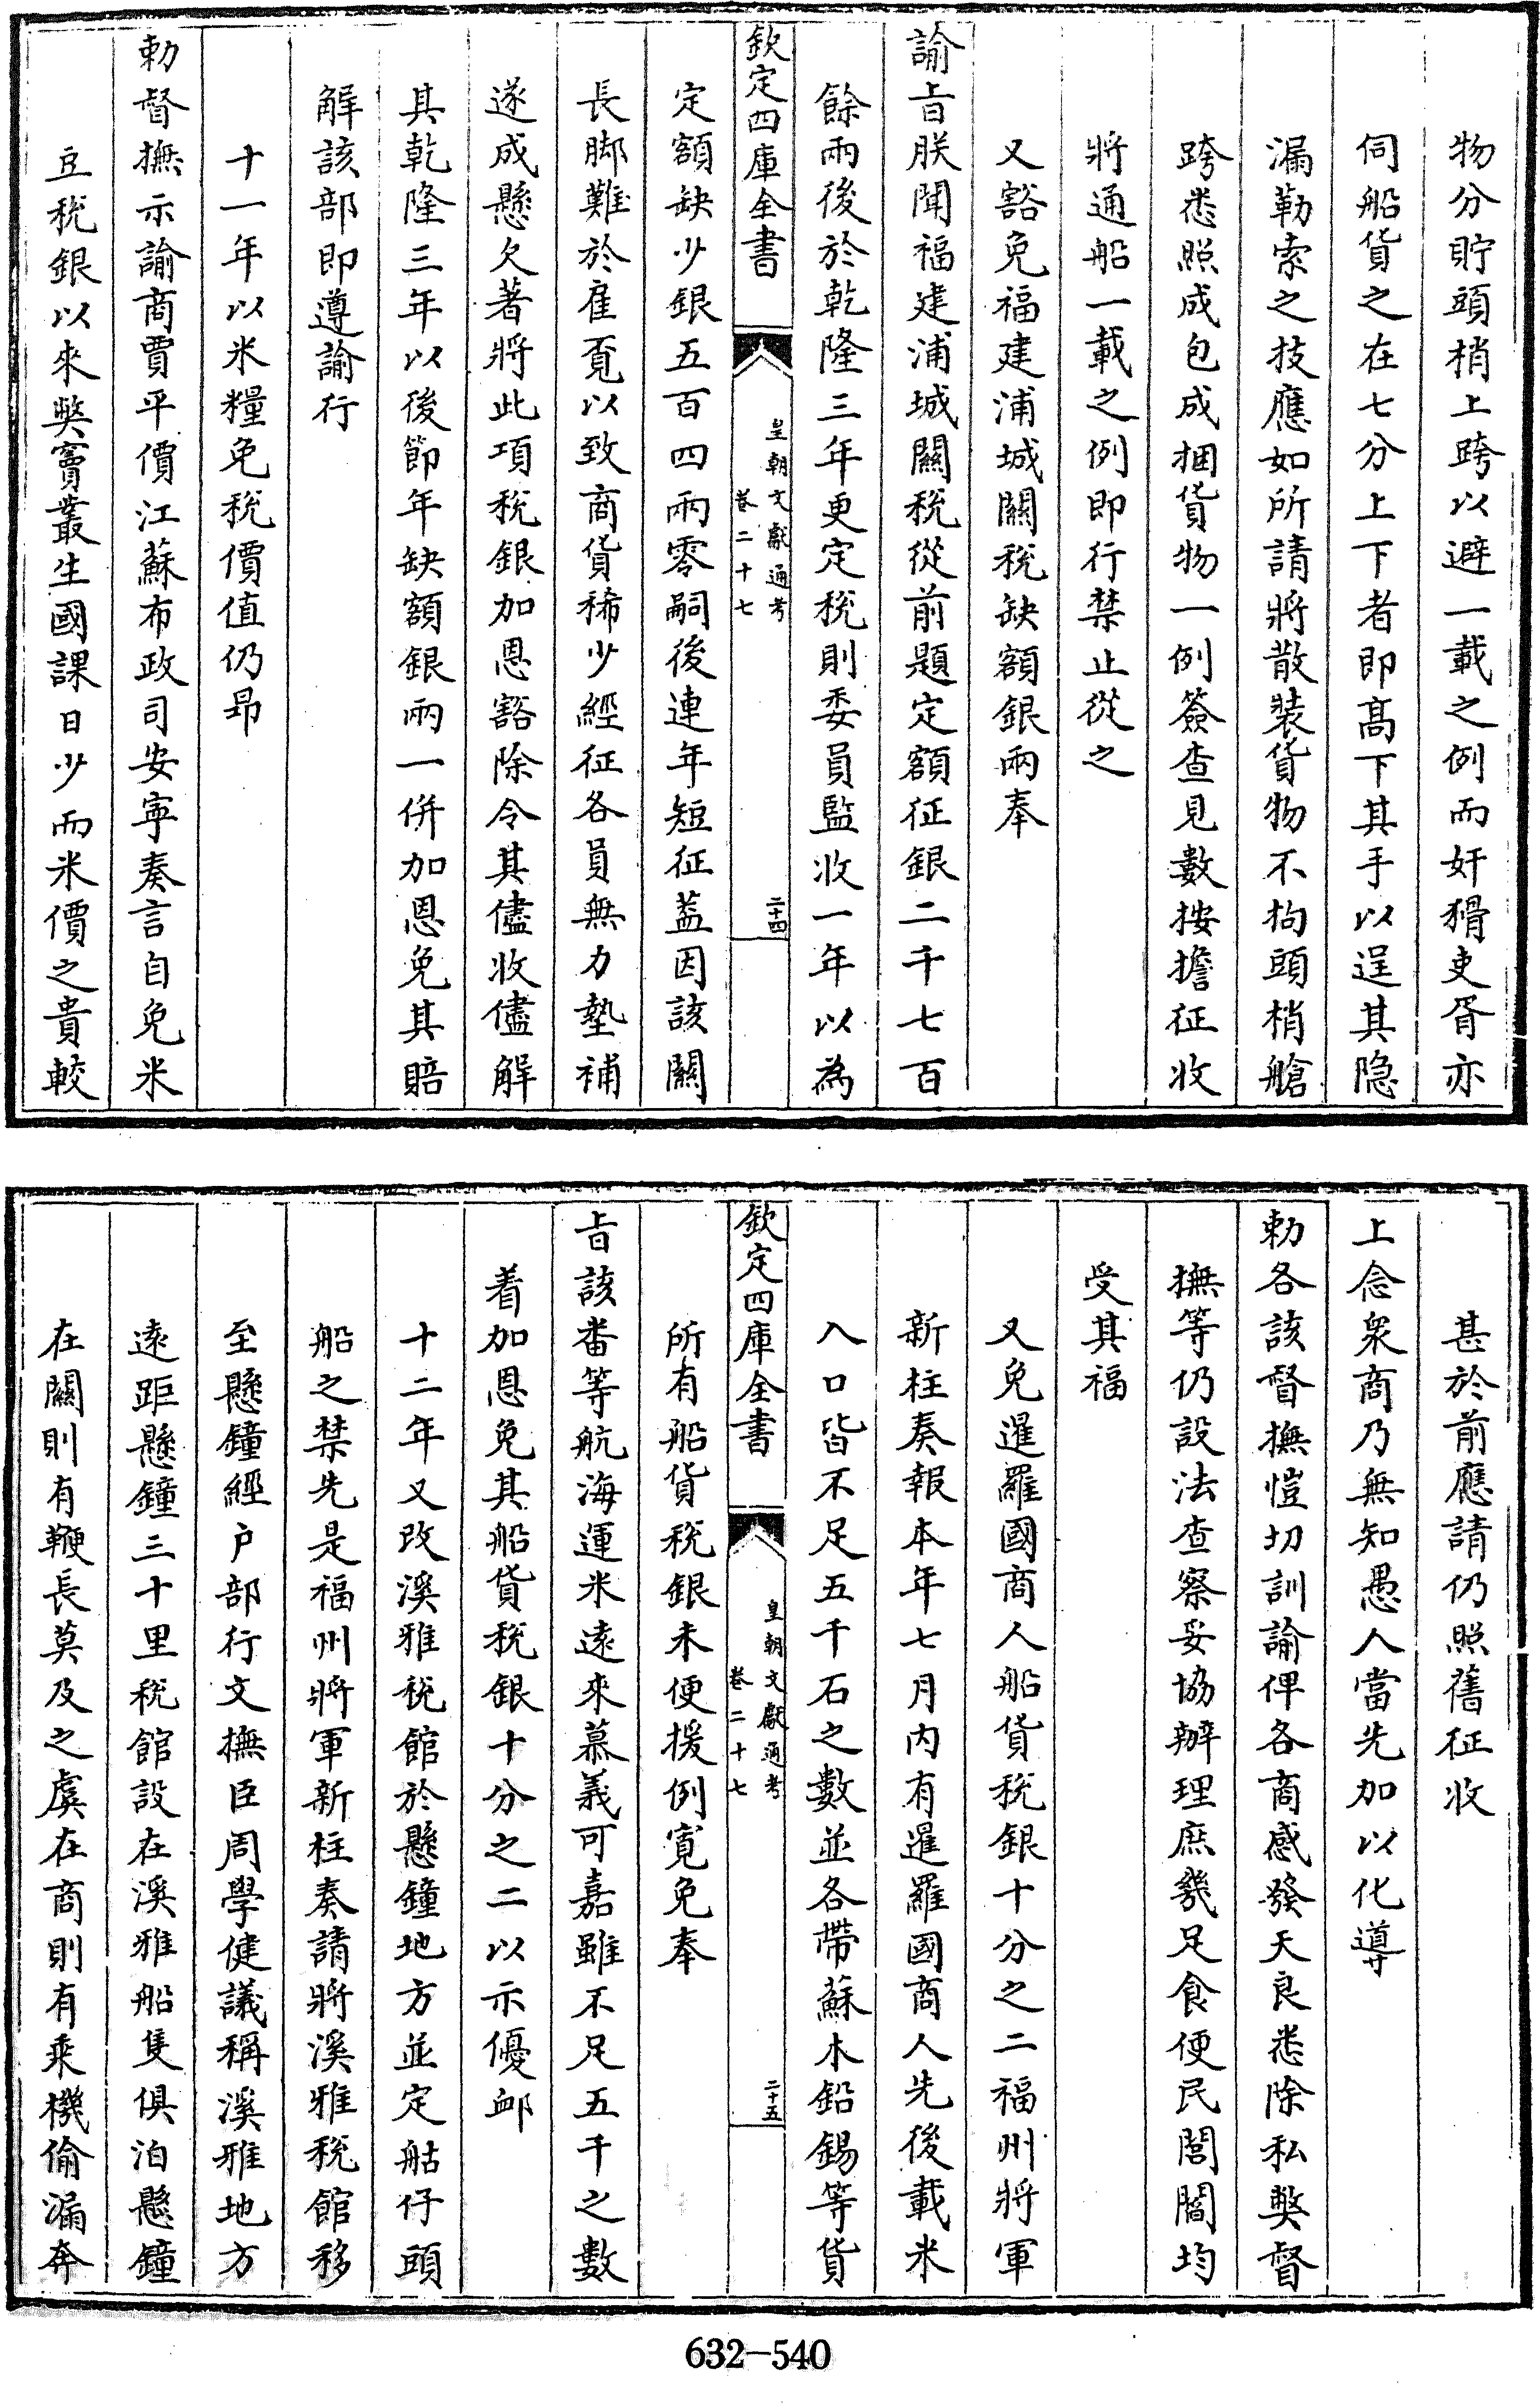 物分貯頭梢上跨以避一載之例而奸猾吏胥亦
伺船貨之在七分上下者即高下其手以逞其隐
漏勒索之技應如所請將散裝貨物不拘頭梢艙
跨悉照成包成捆貨物一例簽查見數按擔征收
將通船一載之例即行禁止從之
又豁免福建浦城關稅缺額銀兩奉
諭㫖朕聞福建浦城關稅從前題定額征銀二千七百
餘兩後於乾隆三年更定稅則委員監收一年以為
欽定四庫全書
皇朝文獻通考
卷二十七
二十四
定額缺少銀五百四兩零嗣後連年短征葢因該關
長脚難於雇覔以致商貨稀少經征各員無力墊補
遂成懸欠著將此項稅銀加恩豁除令其儘收儘解
其乾隆三年以後節年缺額銀兩一併加恩免其賠
解該部即遵諭行
十一年以米糧免稅價值仍昻
勅督撫示諭商賈平價江蘇布政司安寧奏言自免米
豆稅銀以來獘竇叢生國課日少而米價之貴較
甚於前應請仍照舊征收
上念衆商乃無知愚人當先加以化導
勅各該督撫愷切訓諭俾各商感發天良悉除私獘督
撫等仍設法查察妥協辦理庶幾足食便民閭閻均
受其福
又免暹羅國商人船貨稅銀十分之二福州將軍
新柱奏報本年七月内有暹羅國商人先後載米
入口皆不足五千石之數並各帶蘇木鉛錫等貨
欽定四庫全書
皇朝文獻通考
卷二十七
二十五
所有船貨稅銀未便援例寛免奉
㫖該畨等航海運米遠來慕義可嘉雖不足五千之數
着加恩免其船貨稅銀十分之二以示優䘏
十二年又改溪雅稅館於懸鐘地方並定舡仔頭
船之禁先是福州將軍新柱奏請將溪雅稅館移
至懸鐘經户部行文撫臣周學健議稱溪雅地方
遠距懸鐘三十里稅館設在溪雅船隻俱泊懸鐘
在關則有鞭長莫及之虞在商則有乘機偷漏奔
632-540